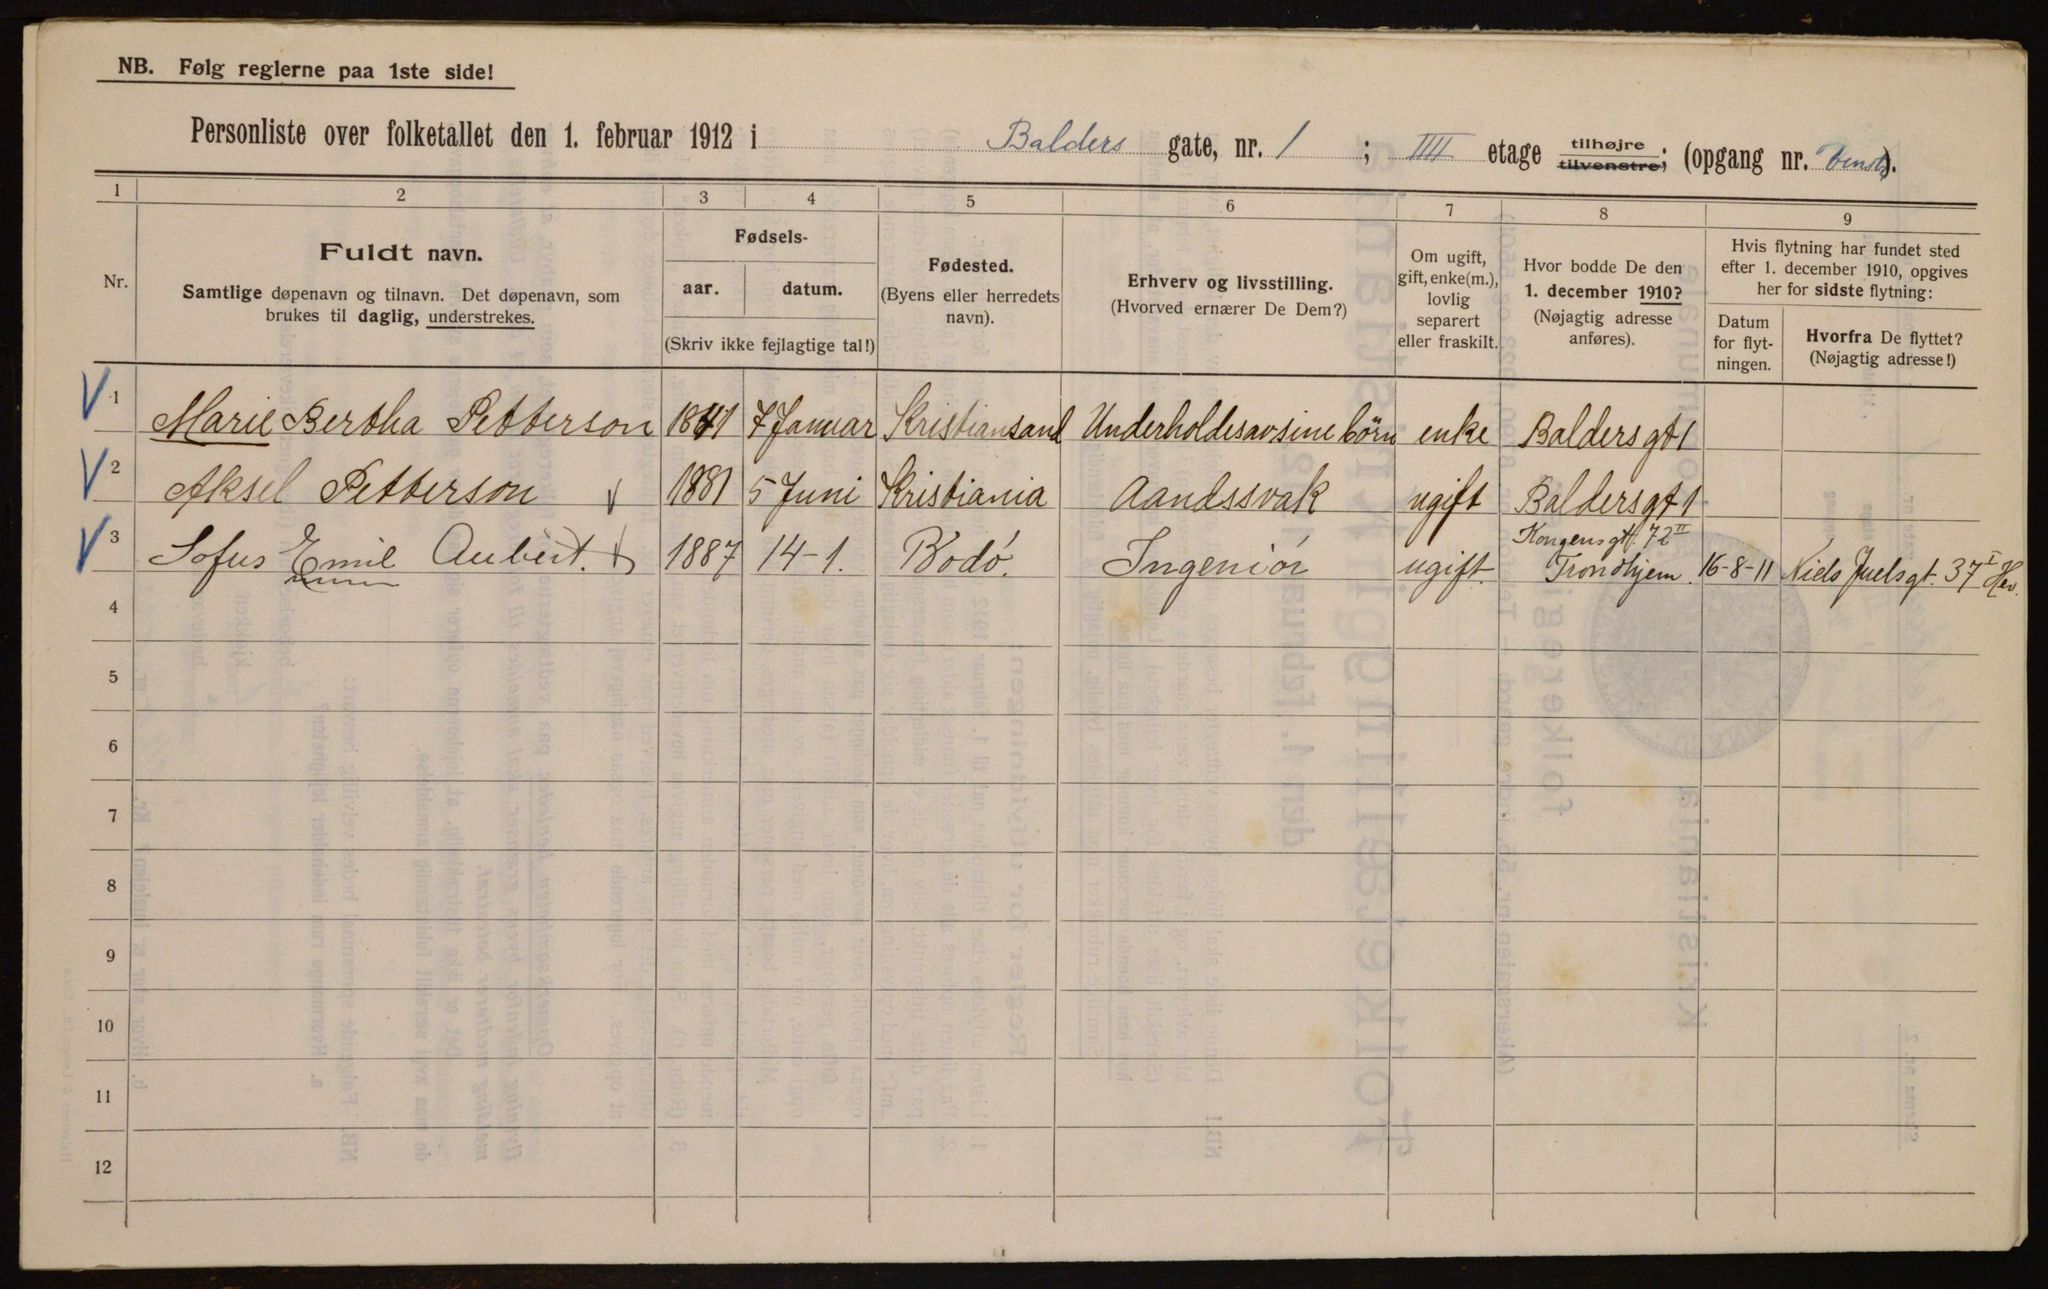 NB. Følg reglerne paa 1ste side!
Personliste over folketallet den 1. februar 1912 i Balders gate, nr. 1 ; IIII etage tilhøjre tilvenstre; (opgang nr. ).
1 2 3 4 5 6 7 8 9
Nr.
Fuldt navn.
Samtlige døpenavn og tilnavn. Det døpenavn, som
brukes til daglig, understrekes.
Fødsels-
aar. datum.
(Skriv ikke fejlagtige tal!)
Fødested.
(Byens eller herredets
navn).
Erhverv og livsstilling.
(Hvorved ernærer De Dem?)
Om ugift,
gift, enke(m.),
lovlig
separert
eller fraskilt.
Hvor bodde De den
1. december 1910?
(Nøjagtig adresse
anføres).
Hvis flytning har fundet sted
efter 1. december 1910, opgives
her for sidste flytning:
Datum
for flyt-
ningen.
Hvorfra De flyttet?
(Nøjagtig adresse!)
1 Marie Bertha Petterson 1841 7 Januar Kristiansand Underholdesavsine børn enke Baldersgt 1
2 Aksel Petterson 1881 5 Juni Kristiania Aandssvak ugift Baldersgt 1
3 Sofus Emil Aubert. 1887 14-1. Bodó. Ingeniór ugift. Kongensgt. 72 II
Trondhjem. 16-8-11 Niels Juelsgt. 37 I
4
5
6
7
8
9
10
11
12